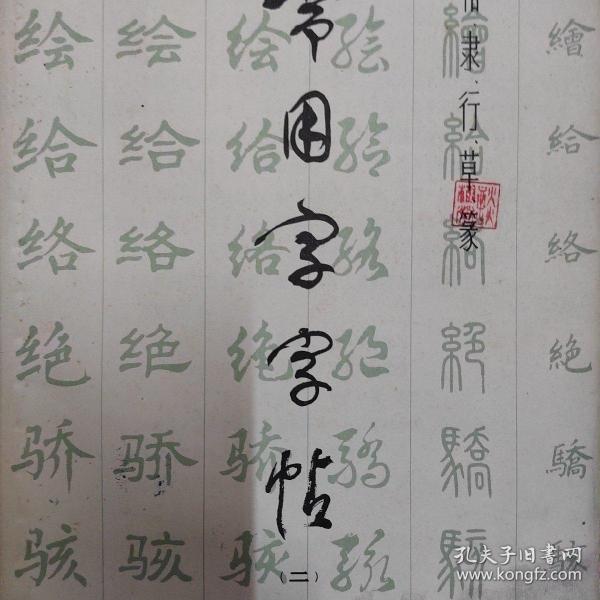 常用字字帖
(二)
隶、行、草、篆
绘 绘 绘 绘 繪 繪
给 给 给 给 給 給
络 络 络 络 絡 絡
绝 绝 绝 绝 絕 絶
骄 骄 骄 骄 驕 驕
骇 骇 骇 骇 駭 駭
孔夫子旧书网
www.kongfz.com